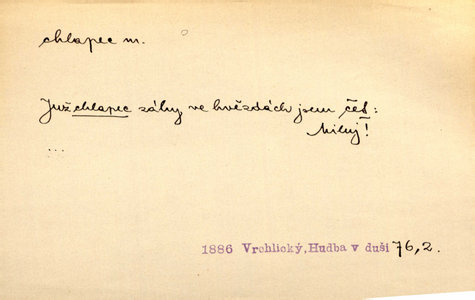 chlapec m.
Již chlapec záhy ve hvězdách jsem čet:
Miluj!
...
1886 Vrchlický, Hudba v duši 76,2.